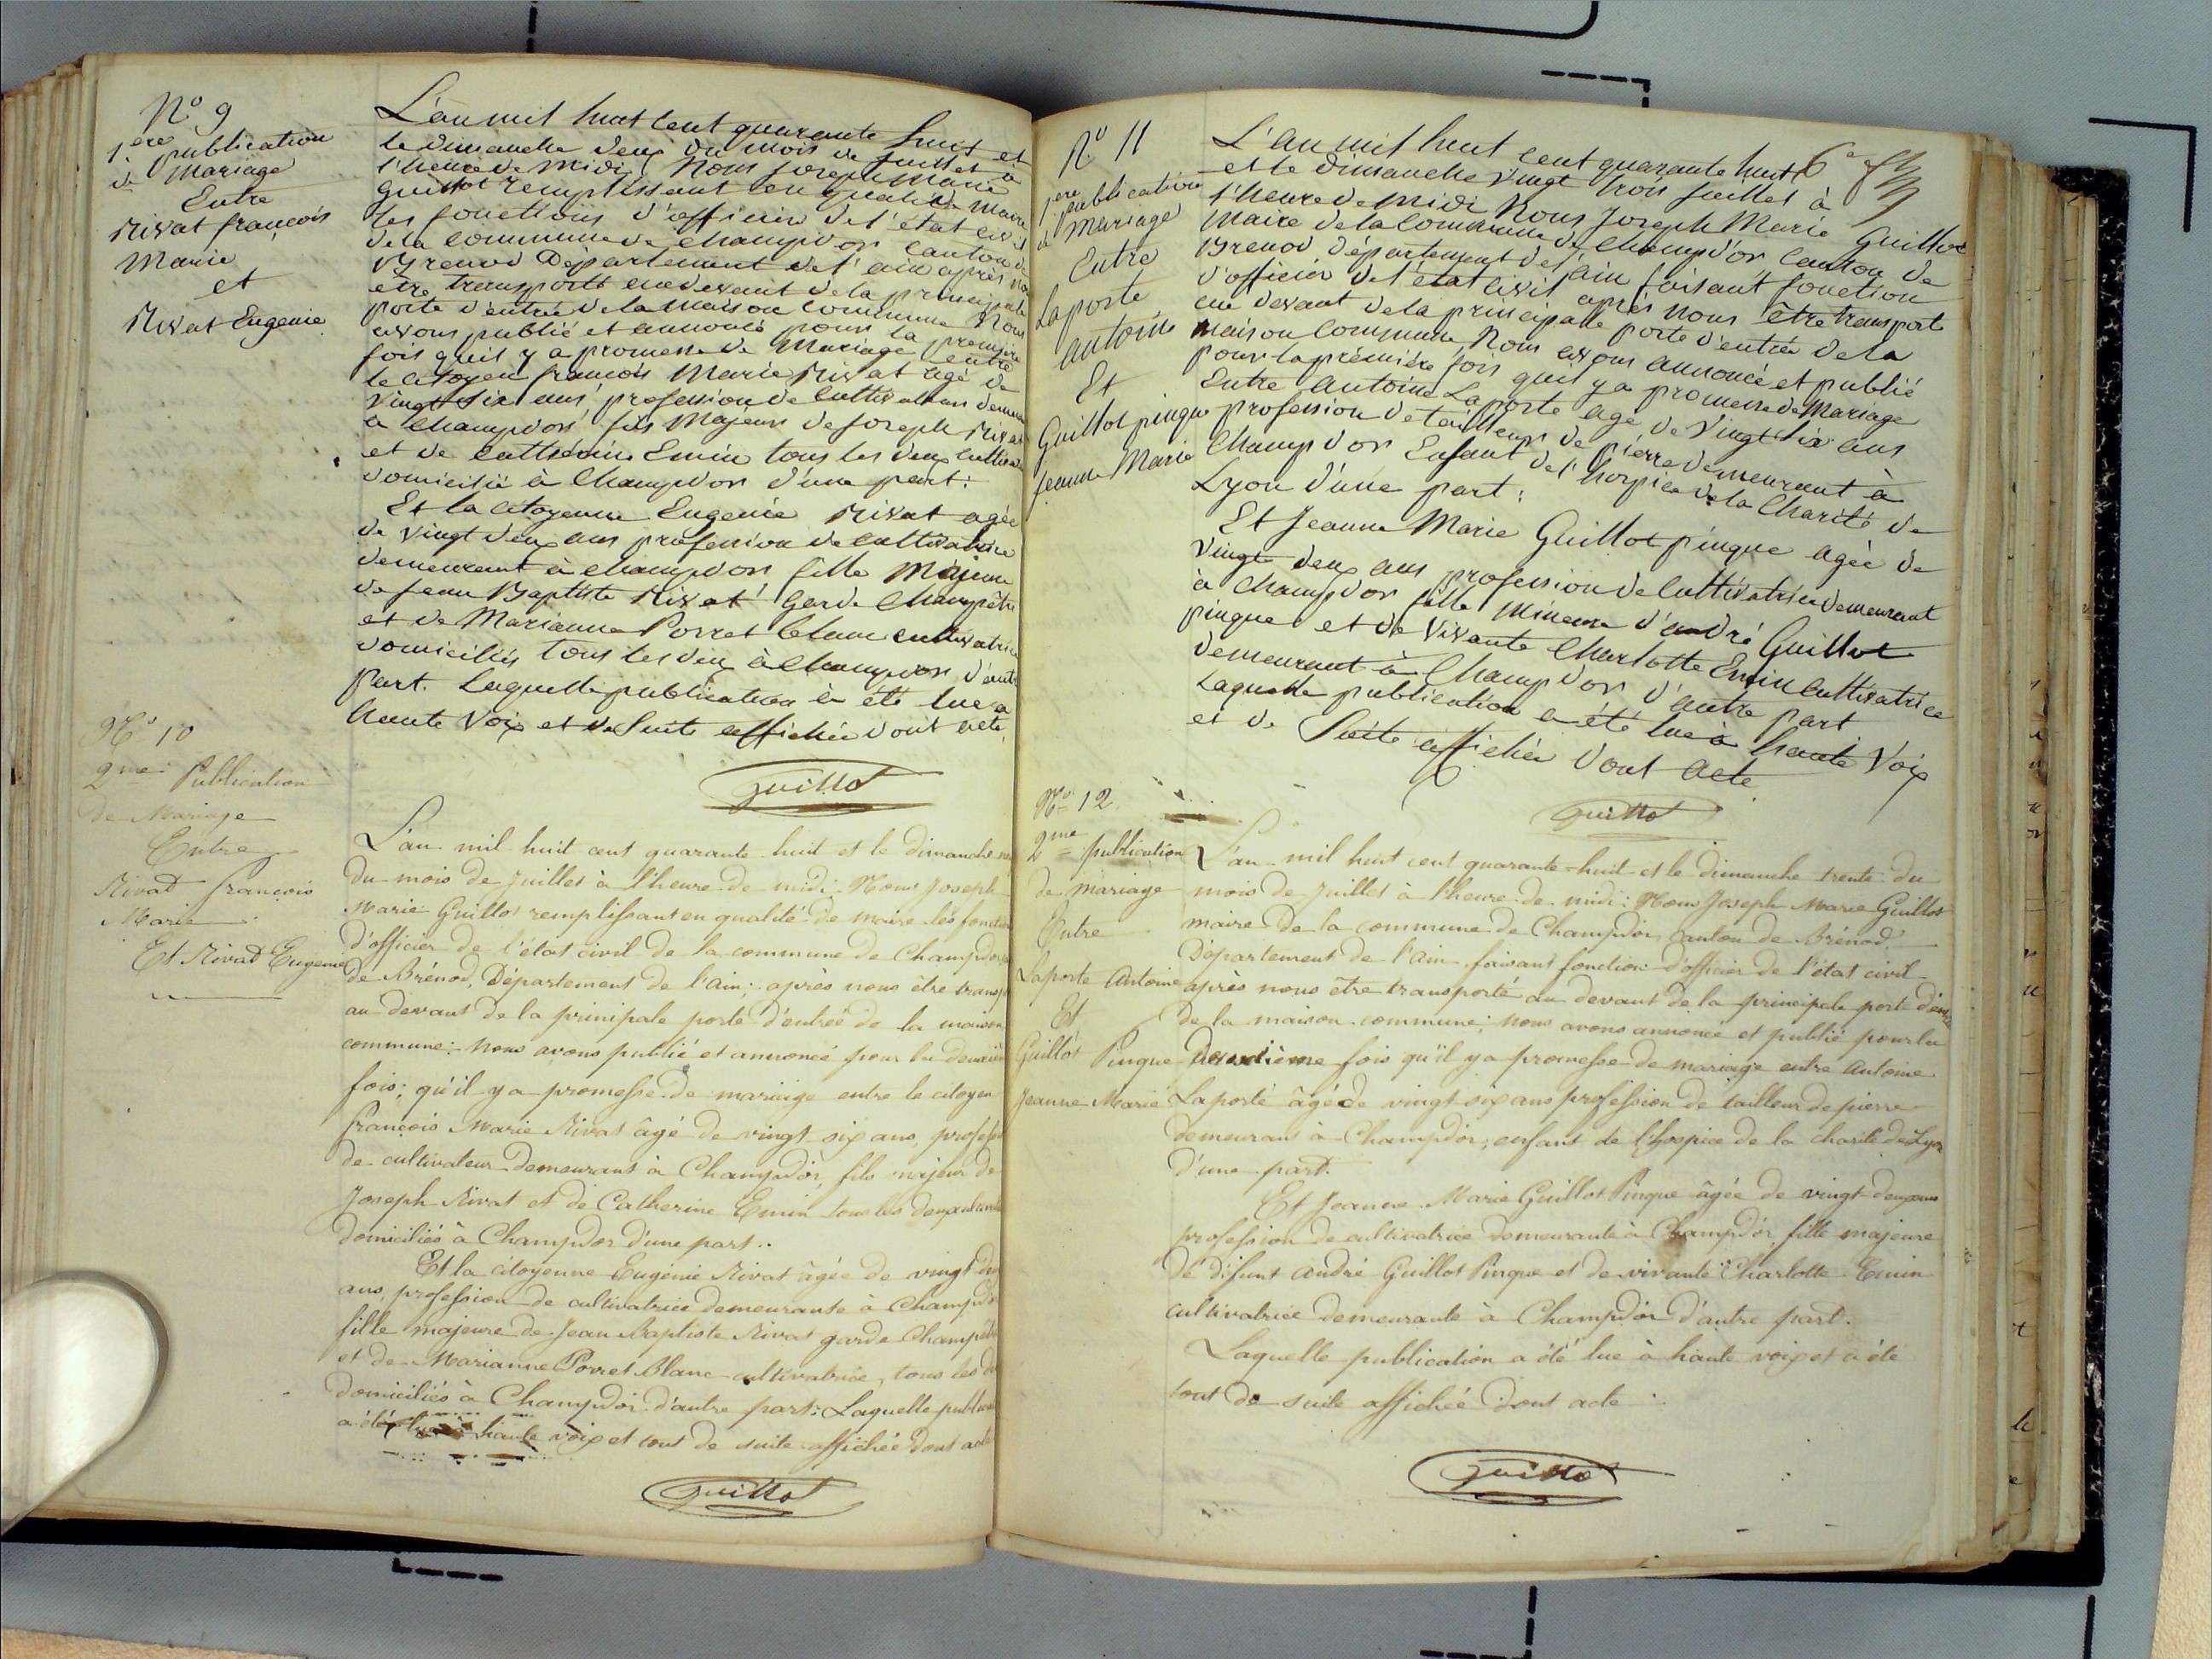 N° 9
1ère publication
de Mariage
Entre
Rivat françois
Marie
et
Rivat Eugenie
L'an mil huit cent quarante huit et
le dimanche deux du mois de Juillet à
l'heure de midi Nous Joseph Marie
Guillot remplissant en qualité de Maire
les fonctions d'officier de l'état civil
de la commune de Champdor Canton de
Brenod Département de l'ain après nous
etre transporté au devant de la principale
porte d'entrée de la Maison commune Nous
avons publié et annoncé pour la première
fois qu'il y a promesse de Mariage entre
le citoyen françois Marie Rivat agé de
Vingt Six ans profession de Cultivateur demeu
à Champdor, fils Majeur de Joseph Rivat
et de Catherine Emin tous les deux Cultiva
domicilié à Champdor d'une part:
Et la Citoyenne Eugenie Rivat agée
de Vingt deux ans profession de Cultivatrice
demeurant à Champdor fille Majeure
de Jean Baptiste Rivat Garde Champêtre
et de Marianne Porret Blanc cultivatrice
domiciliés tous les deux à Champdor d'autre
part. Laquelle publication à été lue a
haute Voix et de Suite affichée dont acte.
Guillot
N° 10
2me Publication
de Mariage
Entre
Rivat françois
Marie
Et Rivat Eugenie
L'an mil huit cent quarante huit et le dimanche
du mois de Juillet à l'heure de midi: Nous Joseph
Marie Guillot remplissant en qualité de maire les fonction
d'officier de l'état civil de la commune de Champdor
de Brénod, Département de l'ain; après nous être transpo
au devant de la prinipale porte d'entrée de la maison
commune: Nous avons publié et annoncé pour la deuxièm
fois; qu'il y a promesse de mariage entre le citoyen
françois Marie Rivat âgé de vingt six ans, profession
de cultivateur demeurant à Champdor, fils majeur de
Joseph Rivat et de Catherine Emin tous les deux
domiciliés à Champdor d'une part..
Et la citoyenne Eugénie Rivat âgée de vingt deux
ans, profession de cultivatrice demeurante à Champdor
fille majeure de Jean Baptiste Rivat garde Champêtre
et de Marianne Porret Blanc cultivatrice, tous les de
domiciliés à Champdor d'autre part: Laquelle publica
a été lue à haute voix et tout de suite affichée dont acte
Guillot
6e
N° 11
1ère publication
de Mariage
Entre
Laporte
antoine
Et
Guillot pinque
Jeanne Marie
L'an mil huit cent quarante huit
et le Dimanche Vingt trois Juillet à
l'heure de midi Nous Joseph Marie Guillot
Maire de la Commune de Champdor Canton de
Brenod département de l'ain faisant fonction
d'officier de l'état civil après nous être transporté
au devant de la principalle porte d'entrée de la
maison Commune, Nous avons annoncé et publié
pour la prémière fois qu'il y a promesse de Mariage
Entre Antoine Laporte agé de Vingt Six ans
profession de tailleurs de pierre demeurant à
Champdor Enfant de l'hospice de la Charité de
Lyon d'une part:
Et Jeanne Marie Guillot pinque agée de
Vingt deux ans profession de Cultivatrice demeurant
à Champdor fille Mineure d'andré Guillot
pinque et de Vivante Charlotte Emin Cultivatrice
demeurant à Champdor d'autre part
Laquelle publication a été lue à haute Voix
et de Suite affichée dont acte
Guillot
N° 12
2me publication
de mariage
Entre
Laporte Antoine
Et
Guillot Pinque
Jeanne Marie
L'an mil huit cent quarante-huit et le dimanche trente du
mois de Juillet à l'heure de midi: Nous Joseph Marie Guillot
maire de la commune de Champdor, canton de Brénod,
Département de l'ain faisant fonction d'officier de l'état civil
après nous être transporté au devant de la principale porte d'entrée
de la maison commune; nous avons annoncé et publié pour la
Deuxième fois qu'il y a promesse de mariage entre Antoine
Laporte âgé de vingt-six ans profession de tailleur de pierre
demeurant à Champdor, enfant de l'hospice de la charité de Lyon
d'une part.
Et Jeanne Marie Guillot Pinque âgée de vingt-deux ans
profession de cultivatrice demeurante à Champdor fille majeure
de difunt André Guillot Pinque et de vivante Charlotte Emin
cultivatrice demeurante à Champdor d'autre part.
Laquelle publication a été lue à haute voix et a été
tout de suite affichée dont acte
Guillot